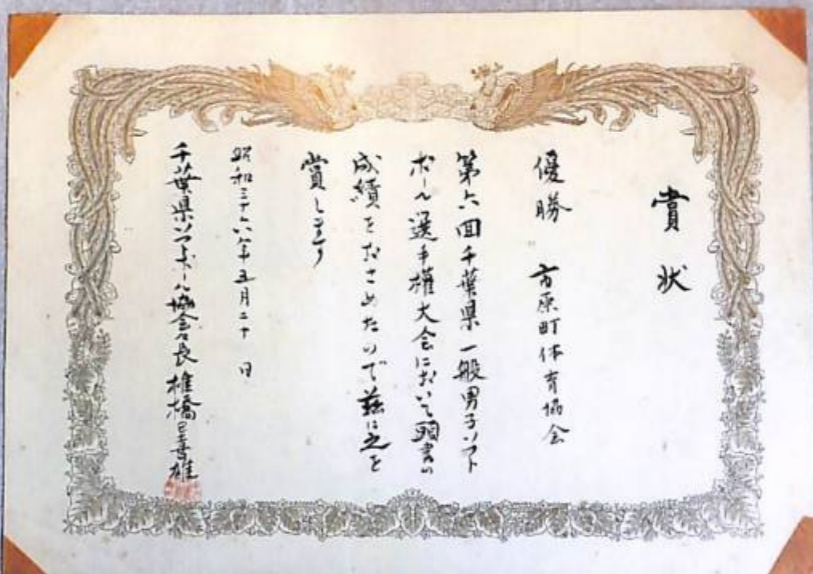 賞状
優勝 市原町体育協会
第六回千葉県一般男子ソフト
ボール選手権大会において頭書の
成績をおさめたので茲に之を
賞します
昭和三十六年五月二十 日
千葉県ソフトボール協会長 橋 雄